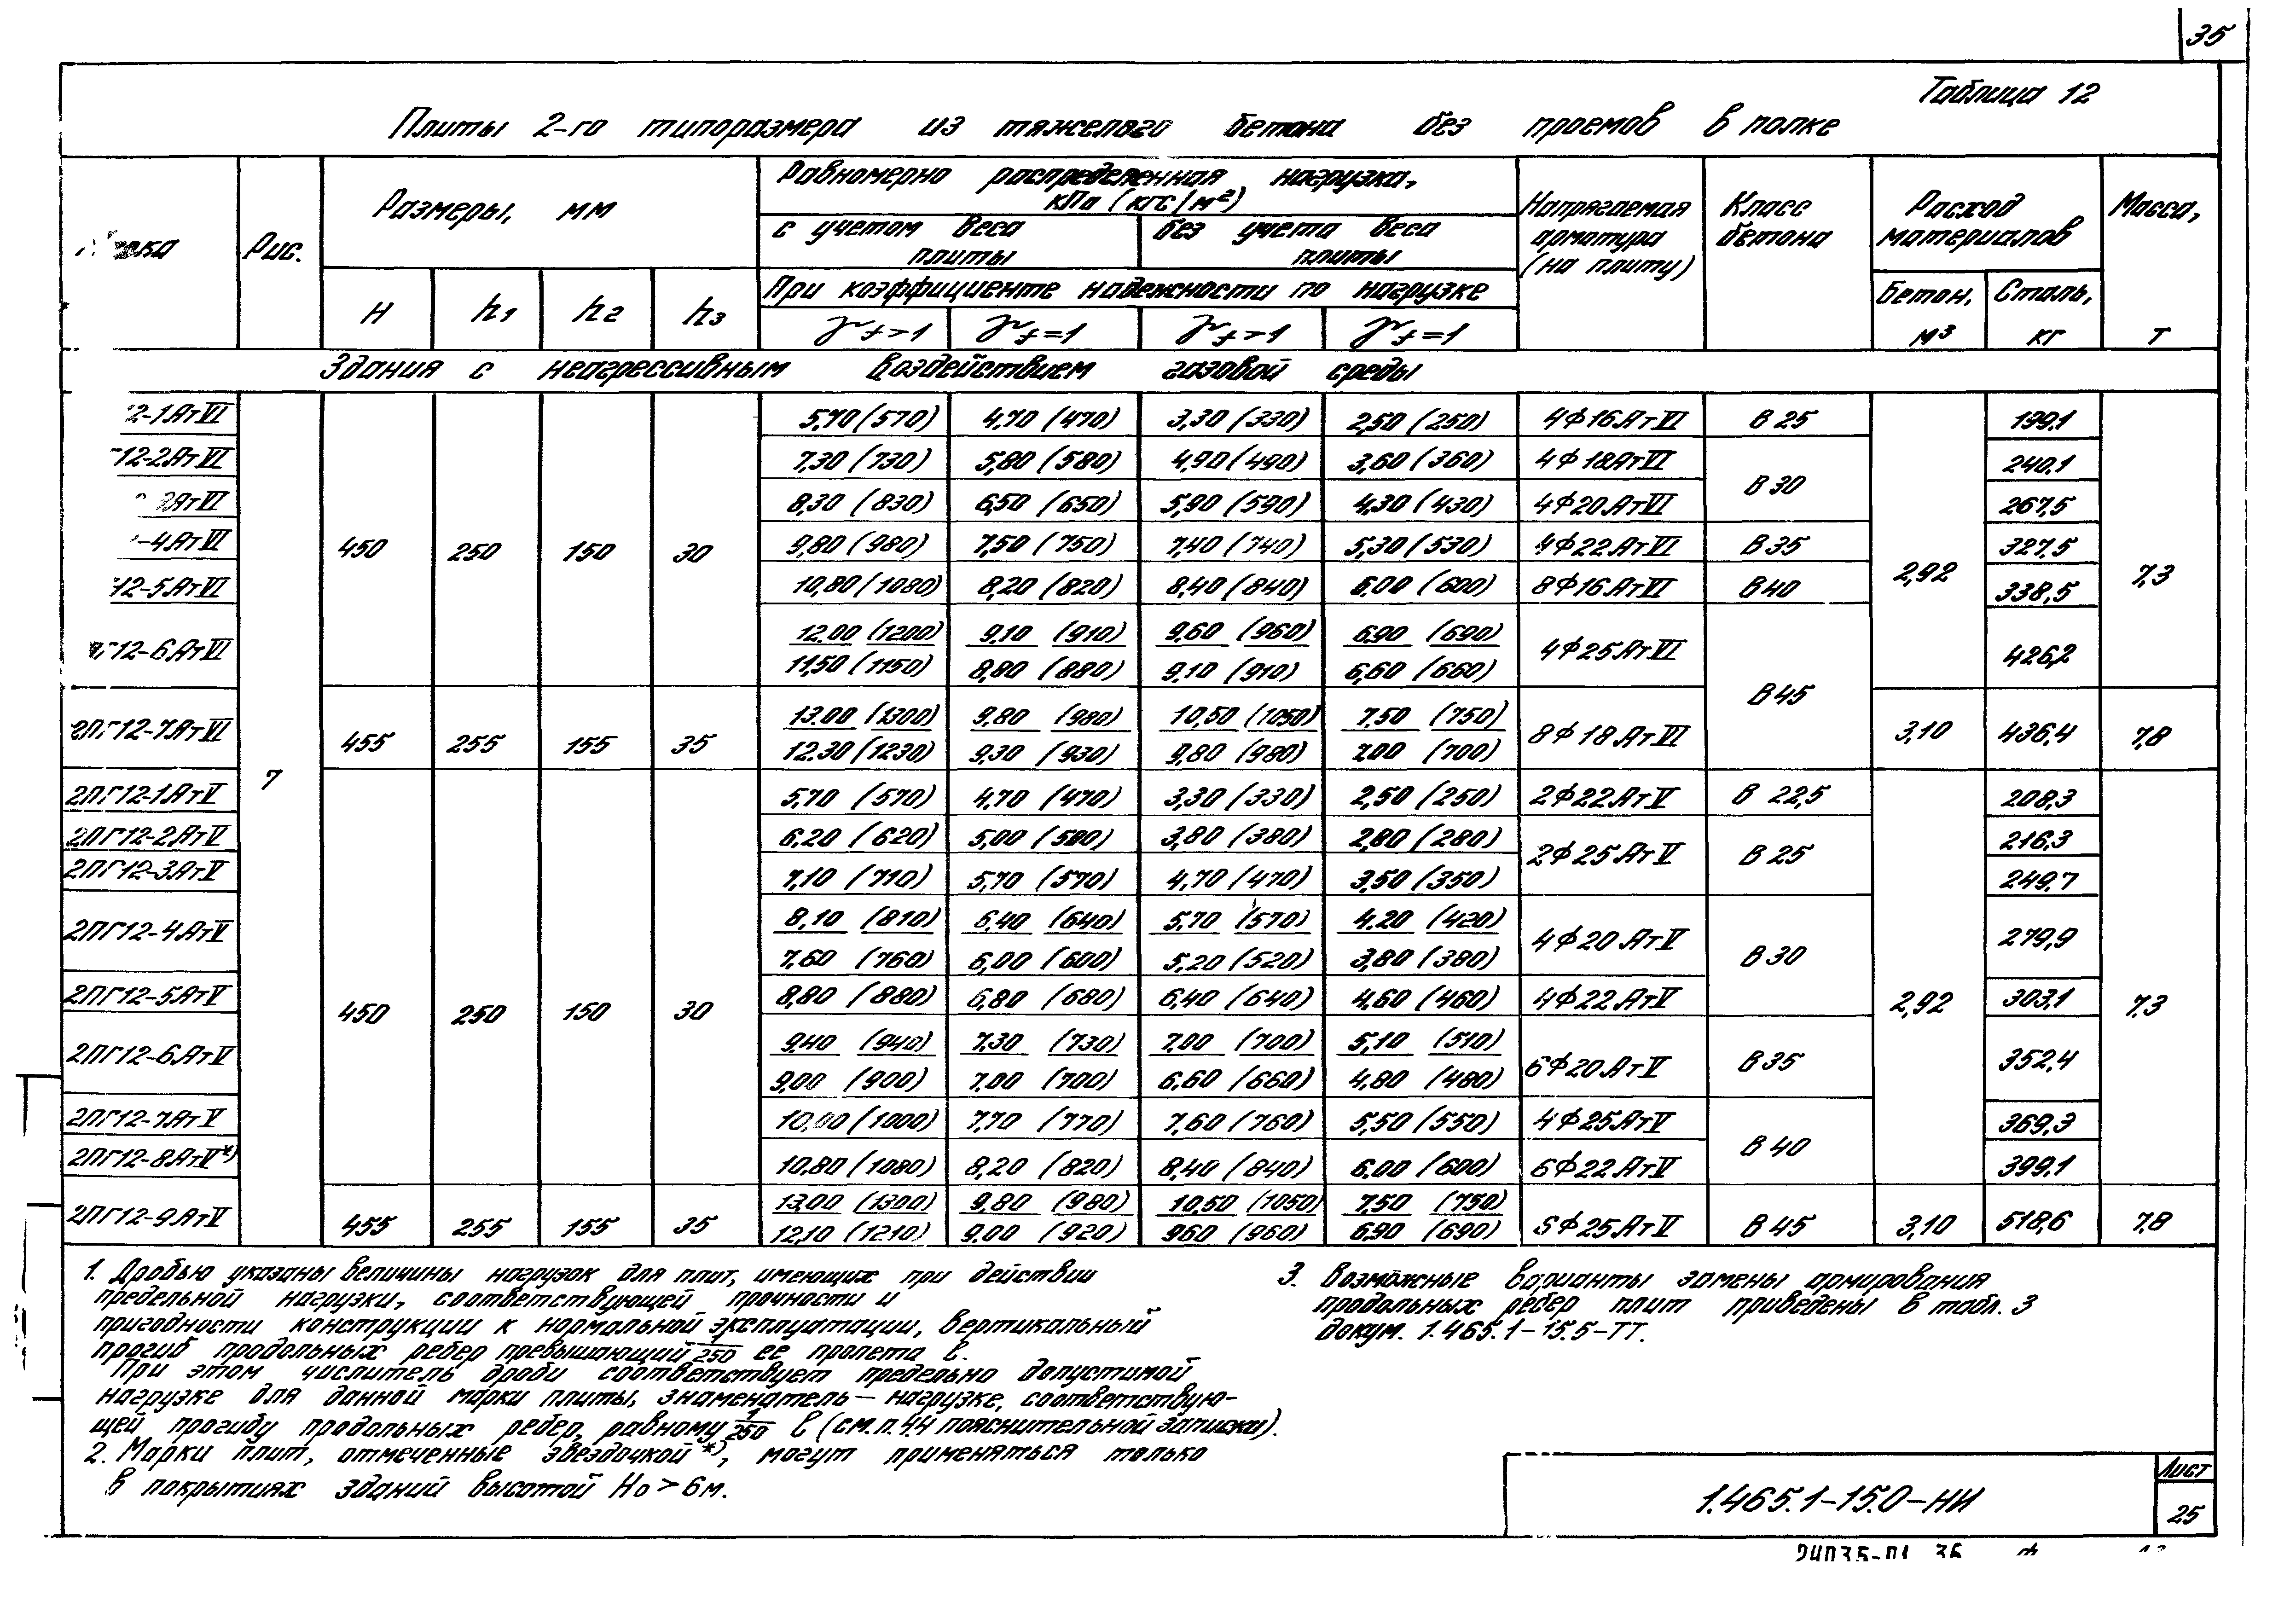 35
Таблица 12
Плиты 2-го типоразмера из тяжелого бетона без проемов в полке
Рис.
Размеры, мм
Равномерно распределенная нагрузка, кПа (кгс/м²)
с учетом веса плиты
без учета веса плиты
При коэффициенте надежности по нагрузке
Напрягаемая арматура (на плиту)
Класс бетона
Расход материалов
Масса, т
H h1 h2 h3
γf>1 γf=1 γf>1 γf=1
Бетон, м³
Сталь, кг
Здания с неагрессивным воздействием газовой среды
12-1АтVI 5,70 (570) 4,70 (470) 3,30 (330) 2,50 (250) 4Ф16АтVI В 25 199,1
12-2АтVI 7,30 (730) 5,80 (580) 4,90 (490) 3,60 (360) 4Ф18АтVI В 30 240,1
-3АтVI 8,30 (830) 6,50 (650) 5,90 (590) 4,30 (430) 4Ф20АтVI 267,5
-4АтVI 450 250 150 30 9,80 (980) 7,50 (750) 7,40 (740) 5,30 (530) 4Ф22АтVI В35 2,92 327,5 7,3
12-5АтVI 10,80 (1080) 8,20 (820) 8,40 (840) 6,00 (600) 8Ф16АтVI В40 338,5
Г12-6АтVI 12,00 (1200) 9,10 (910) 9,60 (960) 6,90 (690) 4Ф25АтVI 426,2
11,50 (1150) 8,80 (880) 9,10 (910) 6,60 (660)
В45
2ПГ12-7АтVI 455 255 155 35 13,00 (1300) 9,80 (980) 10,50 (1050) 7,50 (750) 8Ф18АтVI 3,10 436,4 7,8
12,30 (1230) 9,30 (930) 9,80 (980) 7,00 (700)
7
2ПГ12-1АтV 5,70 (570) 4,70 (470) 3,30 (330) 2,50 (250) 2Ф22АтV В 22,5 208,3
2ПГ12-2АтV 6,20 (620) 5,00 (500) 3,80 (380) 2,80 (280) 2Ф25АтV В 25 216,3
2ПГ12-3АтV 7,10 (710) 5,70 (570) 4,70 (470) 3,50 (350) 249,7
2ПГ12-4АтV 8,10 (810) 6,40 (640) 5,70 (570) 4,20 (420) 4Ф20АтV В30 279,9
7,60 (760) 6,00 (600) 5,20 (520) 3,80 (380)
2ПГ12-5АтV 450 250 150 30 8,80 (880) 6,80 (680) 6,40 (640) 4,60 (460) 4Ф22АтV 2,92 303,1 7,3
2ПГ12-6АтV 9,40 (940) 7,30 (730) 7,00 (700) 5,10 (510) 6Ф20АтV В35 352,4
9,00 (900) 7,00 (700) 6,60 (660) 4,80 (480)
2ПГ12-7АтV 10,00 (1000) 7,70 (770) 7,60 (760) 5,50 (550) 4Ф25АтV В 40 369,3
2ПГ12-8АтV*) 10,80 (1080) 8,20 (820) 8,40 (840) 6,00 (600) 6Ф22АтV 399,1
2ПГ12-9АтV 455 255 155 35 13,00 (1300) 9,80 (980) 10,50 (1050) 7,50 (750) В 45 3,10 518,6 7,8
12,10 (1210) 9,00 (920) 960 (960) 6,90 (690)
1. Дробью указаны величины нагрузок для плит, имеющих при действии
предельной нагрузки, соответствующей прочности и
пригодности конструкции к нормальной эксплуатации, вертикальный
прогиб продольных ребер превышающий 1/250 ее пролета ℓ.
При этом числитель дроби соответствует предельно допустимой
нагрузке для данной марки плиты, знаменатель — нагрузке, соответствую-
щей прогибу продольных ребер, равному 1/250 ℓ (см. п. 4.4 пояснительной записки).
2. Марки плит, отмеченные звездочкой *), могут применяться только
в покрытиях зданий высотой Но > 6м.
3. Возможные варианты замены армирования
продольных ребер плит приведены в табл. 3
докум. 1.465.1-15.5-ТТ.
1.465.1-15.0-НИ
Лист
25
24035-01 36